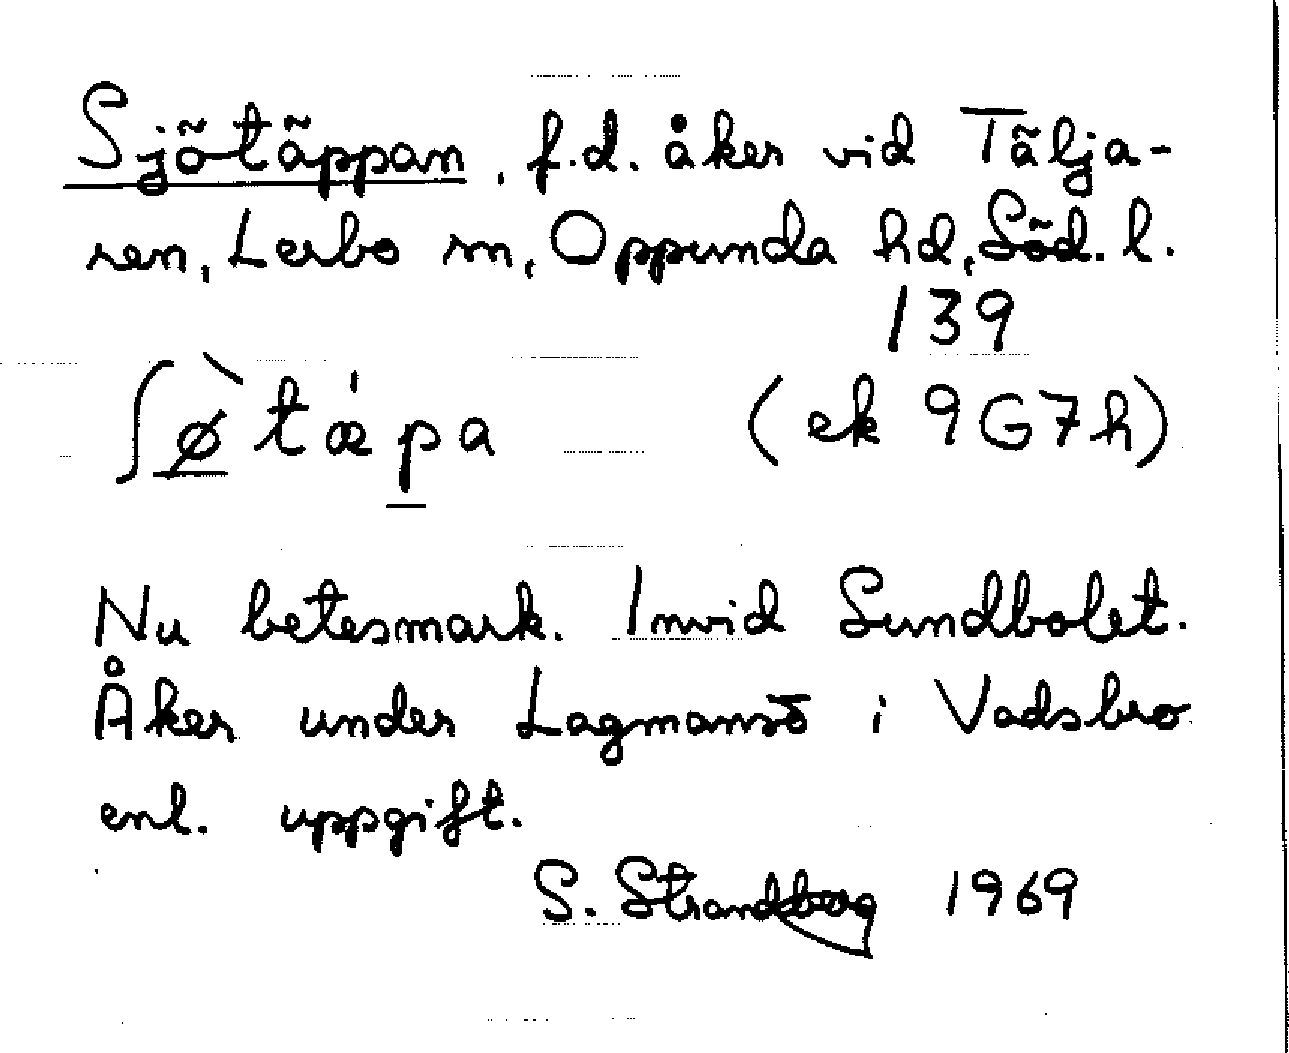 Sjötäppan, f.d. åker vid Tälja-
ren, Lerbo sn, Oppunda hd, Söd. l.
139
ʃø̀tǽpa (ek 9G7h)
Nu betesmark. Invid Sundbolet.
Åker under Lagmansö i Vadsbro
enl. uppgift.
S. Strandberg 1969